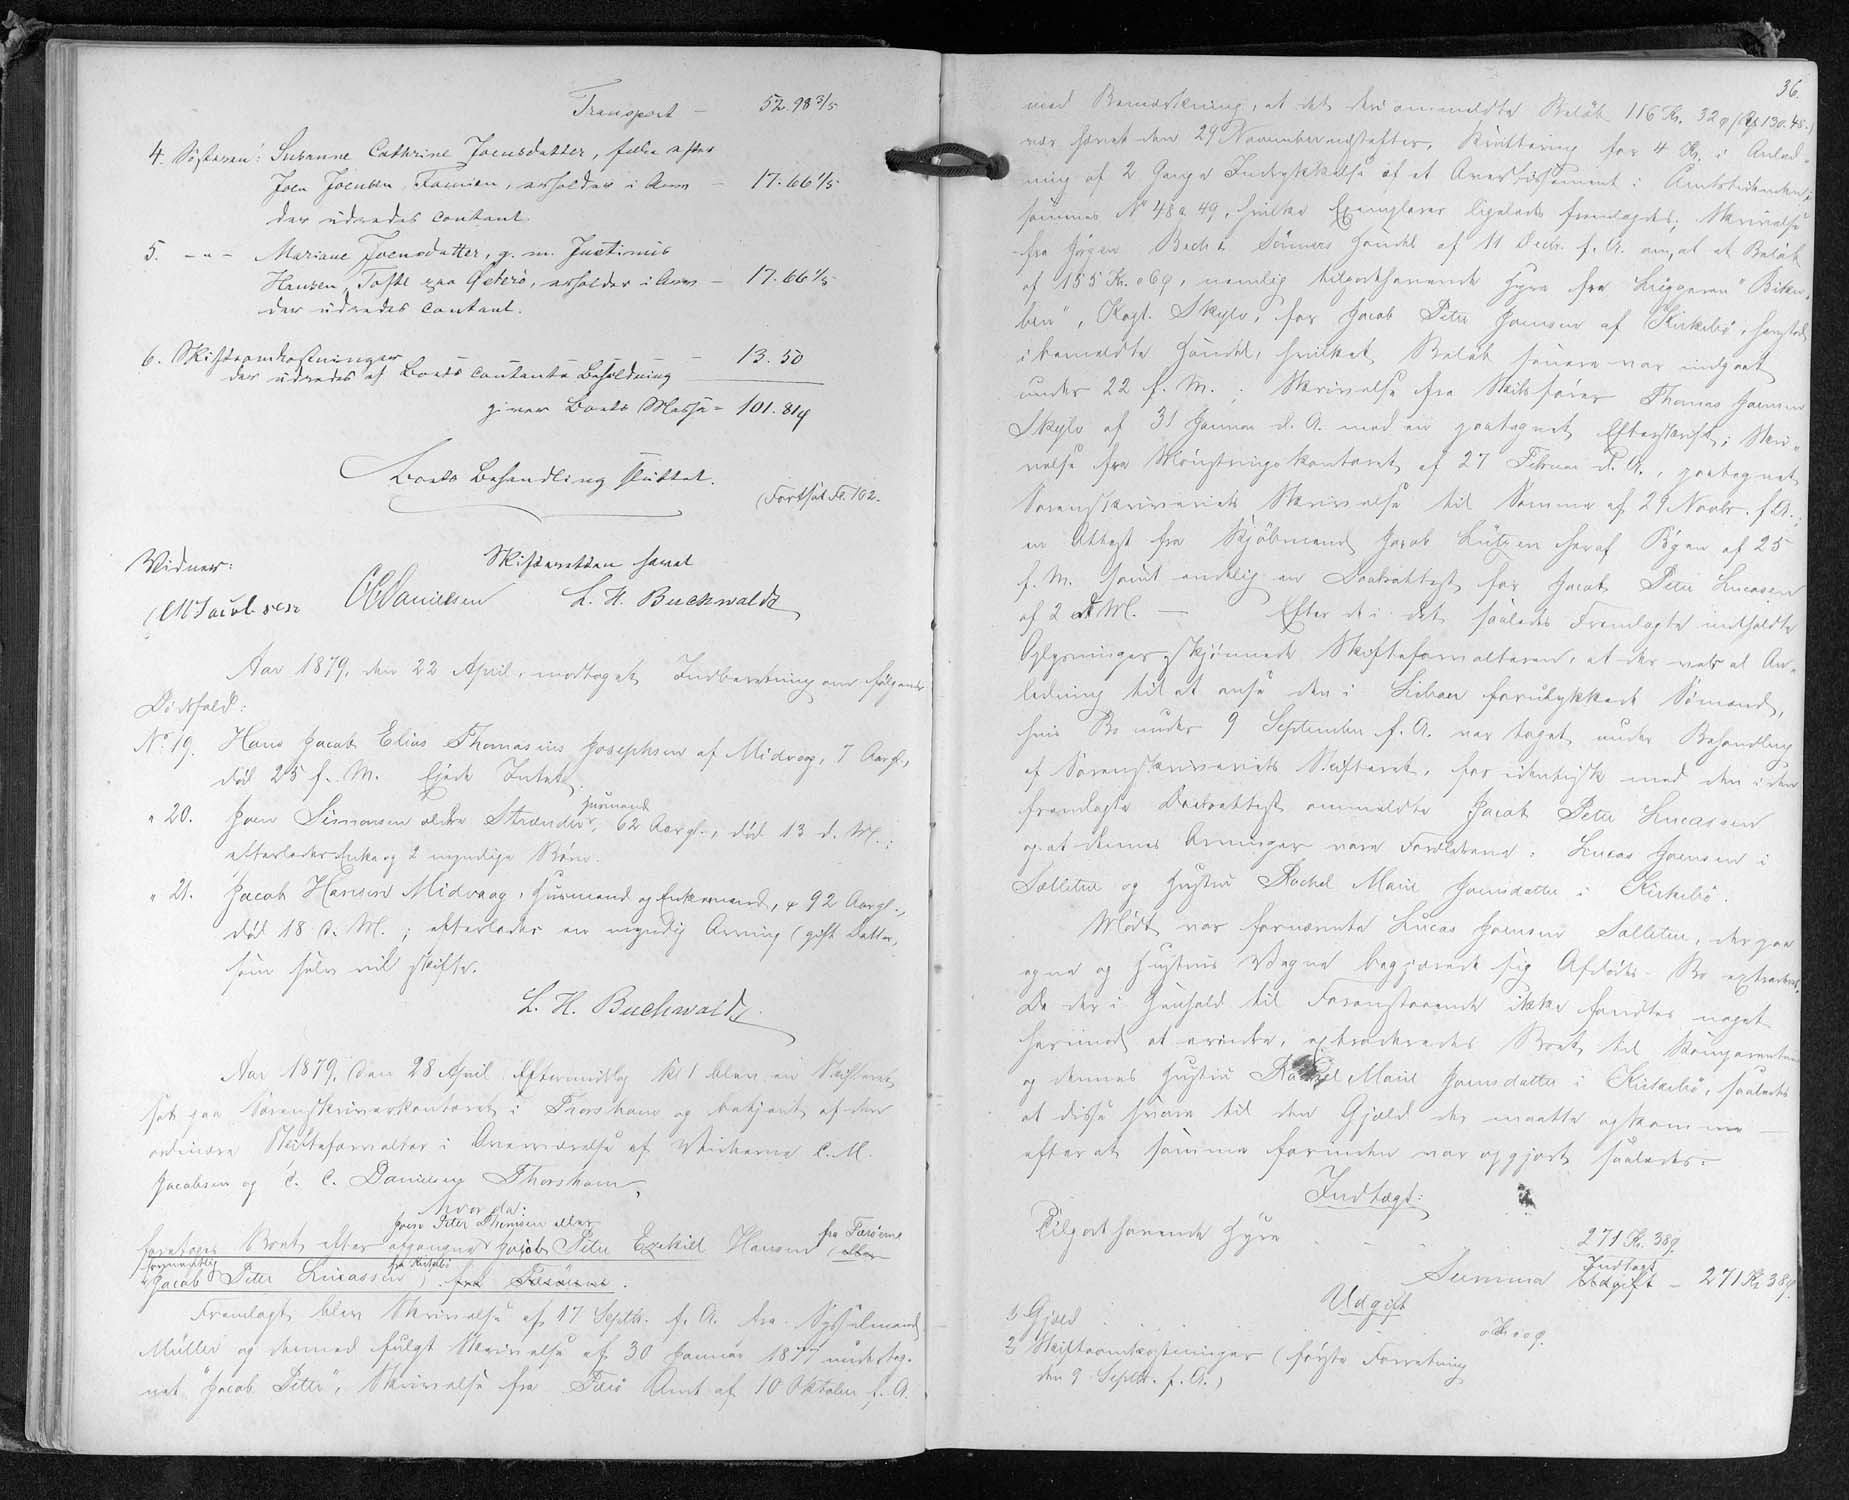 Transport — 52.98 3/5
4. Søsteren: Susanne Cathrine Joensdatter, Enke efter
Joen Joensen, Famien, erholder i Arv — 17.66 1/5
der udredes contant.
5. -"- Mariane Joensdatter, g. m. Justinus
Hansen, Tofte paa Østerø, erholder i Arv — 17.66 1/5
der udredes contant.
6. Skifteomkostninger — 13.50
der udredes af Boets contante Beholdning
giver Boets Masse = 101.81 4
Boets Behandling sluttet.
(Fortsat Fo. 102.
Skifteretten hævet
Vidner:
CM Jacobsen CC Danielsen L. H. Buchwaldt
Aar 1879, den 22 April, modtoges Indberetning om følgende
Dødsfald:
No. 19. Hans Jacob Elias Thomasius Josephsen af Midvaag, 7 Aargl.,
død 25 f. M. Ejede Intet.
" 20. Joen Simonsen ældre Strænder, Huusmand, 62 Aargl., død 13 d. M.;
efterlader Enke og 2 myndige Børn.
" 21. Jacob Hansen Midvaag, Huusmand og Enkemand, 92 Aargl.,
død 18 d. M.; efterlader en myndig Arving (gift Datter,
som selv vil skifte.
L. H. Buchwaldt
Aar 1879, den 28 April Eftermiddag Kl 1 blev en Skifteret
sat paa Sorenskriverkontoret i Thorshavn og betjent af den
ordinære Skifteforvalter i Overværelse af Vidnerne C. M.
Jacobsen og C. C. Danielsen Thorshavn,
hvor da:
Joen Peter Thomsen eller
foretoges Boet efter afgangne Jacob Peter Ezekiel Hansen fra Færøerne (eller
formentlig Jacob Peter Lucassen) fra Kirkebø fra Færøerne.
Fremlagt blev Skrivelse af 17 Septbr. f. A. fra Sysselmand
Müller og dermed fulgt Skrivelse af 30 Januar 1877 underteg-
net "Jacob Peter", Skrivelse fra Færø Amt af 10 Oktober f. A.
36.
med Bemærkning, at det deri ommeldte Beløb 116 Kr. 32 Ø
var hævet den 29 November næstefter, Kvittering for 4 Kr. i Anled-
ning af 2 Gange Indrykkelse af et Avertissement i Amtstidenden,
sammes No 48 & 49, hvilke Exemplarer ligeledes fremlagdes; Skrivelse
fra Jørgen Bech & Sønners Handel af 11 Decbr. f. A. om, at et Beløb
af 155 Kr. 06 Ø, nemlig tilgodehavende Hyre fra Luggeren "Biku-
ben", Kapt. Skylv, for Jacob Peter Joensen af Kirkebø, henstod
i bemeldte Handel, hvilket Beløb senere var indgaaet
under 22 f. M.; Skrivelse fra Skibsfører Thomas Joensen
Skylv af 31 Januar d. A. med en paategnet Efterskrift; Skri-
velse fra Mønstringskontoret af 27 Februar d. A., paategnet
Sorenskriveriets Skrivelse til Samme af 29 Novbr. f. A.;
en Attest fra Kjøbmand Jacob Lützen heraf Byen af 25
f. M. samt endelig en Daabsattest for Jacob Peter Lucassen
af 2 d. M. — Efter de i det saaledes Fremlagte indholdte
Oplysninger skjønnede Skifteforvalteren, at der var al An-
ledning til at anse den i Liban forulykkede Sømand,
hvis Bo under 9 September f. A. var taget under Behandling
af Sorenskriveriets Skifteret, for identisk med den i den
fremlagte Daabsattest ommeldte Jacob Peter Lucassen
og at dennes Arvinger vare Forældrene: Lucas Joensen i
Sælletræ og Hustru Rachel Marie Joensdatter i Kirkebø.
Mødt var fornævnte Lucas Joensen Sælletræ, der paa
egne og Hustrus Vegne begjærede sig Afdødes Bo extraderet.
Da der i Henhold til Foranstaaende ikke fandtes noget
herimod at erindre, extraderedes Boet til Komparenten
og dennes Hustru Rachel Marie Joensdatter i Kirkebø, saaledes
at disse svare til den Gjæld der maatte opkomme —
efterat samme forinden var opgjort saaledes:
Indtægt:
Tilgodehavende Hyre - - - 271 Kr. 38 Ø.
Summa Udgift Indtægt — 271 Kr 38 Ø.
Udgift
1, Gjæld - - - 0 Kr 00 Ø.
2, Skifteomkostninger (første Forretning
den 9 Septbr. f. A.)